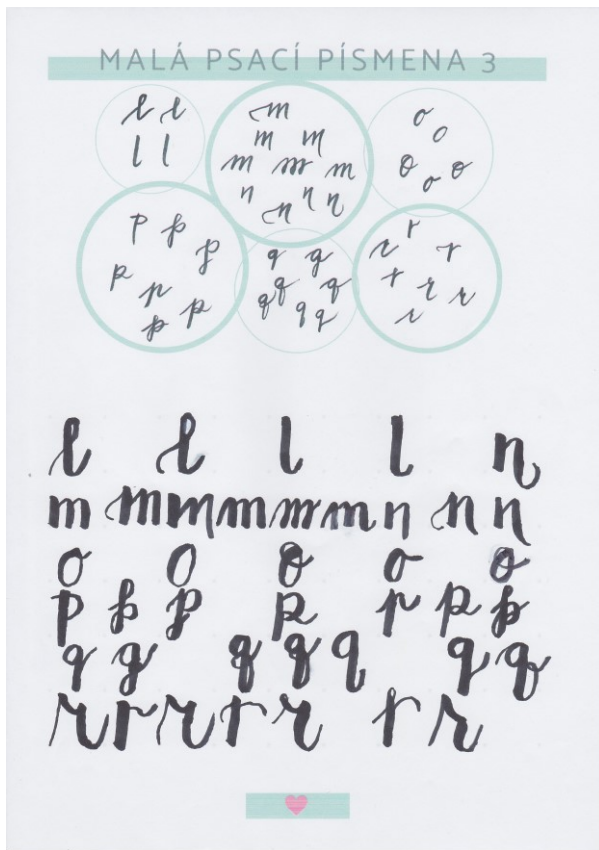 MALÁ PSACÍ PÍSMENA 3
l l
l l
m
m m
m m m
n n n n
o
o
o o
o
p p p
p
p p
p
q q
q q q
q q q
r
r r
r
r r
r
l l l l n
m m m m m m n n n
o o o o o
p p p p p p p
q q q q q q q
r r r r r r r